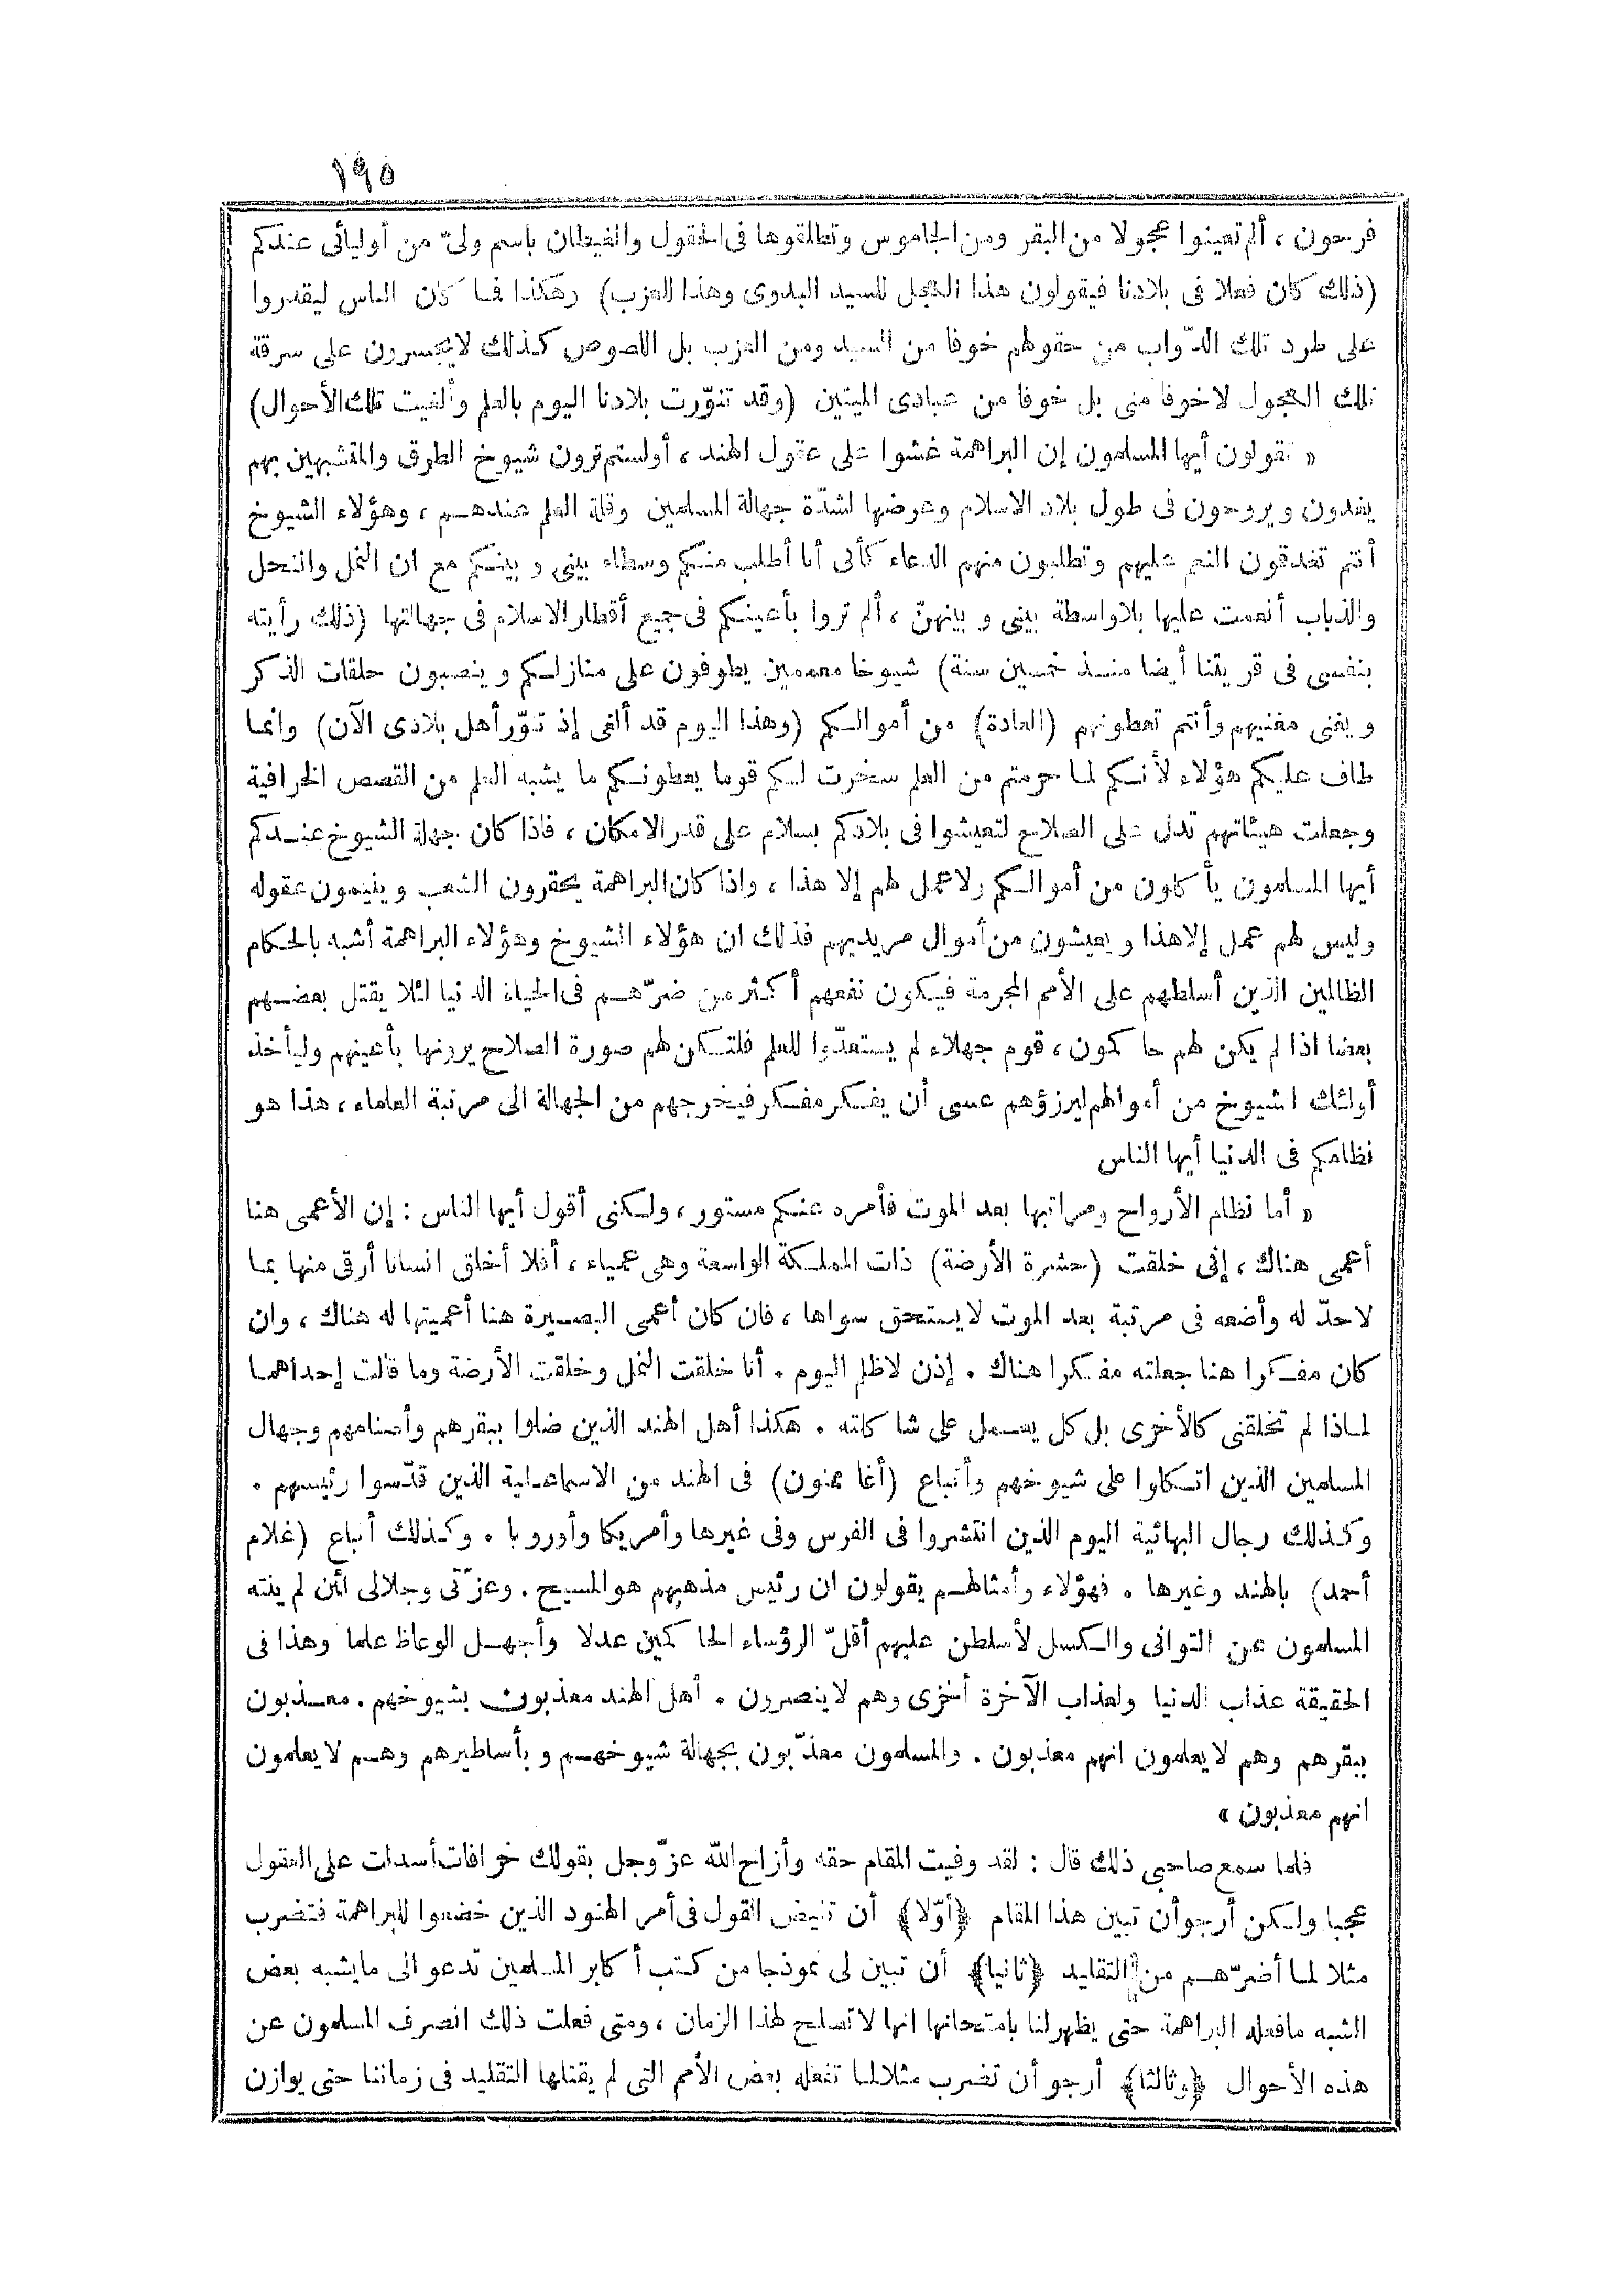 ١٩٥
فرحون ، ألم تعينوا عجولا من البقر ومن الجاموس وتطلقوها فى الحقول والغيطان باسم ولىّ من أوليائى عندكم
(ذلك كان فعلا فى بلادنا فيقولون هذا العجل للسيد البدوى وهذا للعزب) وهكذا فما كان الناس ليقدروا
على طرد تلك الدّواب من حقولهم خوفا من السيد ومن العزب بل اللصوص كذلك لا يجسرون على سرقة
تلك العجول لا خوفا منى بل خوفا من عبادى الميتين (وقد تنوّرت بلادنا اليوم بالعلم وألغيت تلك الأحوال)
« تقولون أيها المسلمون إن البراهمة غشوا على عقول الهند ، أولستم ترون شيوخ الطرق والمتشبهين بهم
يغدون ويروحون فى طول بلاد الاسلام وعرضها لشدّة جهالة المسلمين وقلة العلم عندهم ، وهؤلاء الشيوخ
أنتم تغدقون النعم عليهم وتطلبون منهم الدعاء كأنى أنا أطلب منكم وسطاء بينى وبينكم مع ان النمل والنحل
والذباب أنعمت عليها بلا واسطة بينى وبينهنّ ، ألم تروا بأعينكم فى جميع أقطار الاسلام فى جهالتها (ذلك رأيته
بنفسى فى قريتنا أيضا منذ خمسين سنة) شيوخا معممين يطوفون على منازلكم وينصبون حلقات الذكر
ويغنى مغنيهم وأنتم تعطونهم (العادة) من أموالكم (وهذا اليوم قد ألغى إذ تنوّر أهل بلادى الآن) وانما
طاف عليكم هؤلاء لأنكم لما حرمتم من العلم سخرت لكم قوما يعطونكم ما يشبه العلم من القصص الخرافية
وجعلت هيئاتهم تدل على الصلاح لتعيشوا فى بلادكم بسلام على قدر الامكان ، فاذا كان جهلة الشيوخ عندكم
أيها المسلمون يأكلون من أموالكم ولا عمل لهم إلا هذا ، واذا كان البراهمة يحقرون الشعب وينيمون عقوله
وليس لهم عمل إلا هذا ويعيشون من أموال مريديهم فذلك ان هؤلاء الشيوخ وهؤلاء البراهمة أشبه بالحكام
الظالمين الذين أسلطهم على الأمم المجرمة فيكون نفعهم أكثر من ضرّهم فى الحياة الدنيا لئلا يقتل بعضهم
بعضا اذا لم يكن لهم حاكمون ، قوم جهلاء لم يستعدّوا للعلم فلتكن لهم صورة الصلاح يرونها بأعينهم وليأخذ
أولئك الشيوخ من أموالهم ليرزؤهم عسى أن يفكر مفكر فيخرجهم من الجهالة الى مرتبة العلماء ، هذا هو
نظامكم فى الدنيا أيها الناس
« أما نظام الأرواح ومراتبها بعد الموت فأمره عنكم مستور ، ولكنى أقول أيها الناس : إن الأعمى هنا
أعمى هناك ، إنى خلقت (حشرة الأرضة) ذات المملكة الواسعة وهى عمياء ، أفلا أخلق انسانا أرقى منها بما
لا حدّ له وأضعه فى مرتبة بعد الموت لا يستحق سواها ، فان كان أعمى البصيرة هنا أعميتها له هناك ، وان
كان مفكرا هنا جعلته مفكرا هناك . إذن لا ظلم اليوم . أنا خلقت النمل وخلقت الأرضة وما قالت إحداهما
لماذا لم تخلقنى كالأخرى بل كل يعمل على شاكلته . هكذا أهل الهند الذين ضلوا ببقرهم وأصنامهم وجهال
المسلمين الذين اتكلوا على شيوخهم وأتباع (أغا ممنون) فى الهند من الاسماعيلية الذين قدّسوا رئيسهم .
وكذلك رجال البهائية اليوم الذين انتشروا فى الفرس وفى غيرها وأمريكا وأوروبا . وكذلك أتباع (غلام
أحمد) بالهند وغيرها . فهؤلاء وأمثالهم يقولون ان رئيس مذهبهم هو المسيح . وعزّتى وجلالى لئن لم ينته
المسلمون عن التوانى والكسل لأسلطن عليهم أقلّ الرؤساء الحاكمين عدلا وأجهل الوعاظ علما وهذا فى
الحقيقة عذاب الدنيا ولعذاب الآخرة أخزى وهم لا ينصرون . أهل الهند معذبون بشيوخهم . معذبون
ببقرهم وهم لا يعلمون انهم معذبون . والمسلمون معذّبون بجهالة شيوخهم وبأساطيرهم وهم لا يعلمون
انهم معذبون »
فلما سمع صاحبى ذلك قال : لقد وفيت المقام حقه وأزاح الله عزّ وجل بقولك خرافات أسدلت على العقول
عجبا ولكن أرجو أن تبين هذا المقام ﴿أوّلا﴾ أن تفيض القول فى أمر الهنود الذين خضعوا للبراهمة فتضرب
مثلا لما أضرّهم من التقليد ﴿ثانيا﴾ أن تبين لى نموذجا من كتب أكابر المسلمين تدعو الى ما يشبه بعض
الشبه ما فعله البراهمة حتى يظهر لنا بامتحانها انها لا تصلح لهذا الزمان ، ومتى فعلت ذلك انصرف المسلمون عن
هذه الأحوال ﴿وثالثا﴾ أرجو أن تضرب مثلا لما تفعله بعض الأمم التى لم يقتلها التقليد فى زماننا حتى يوازن